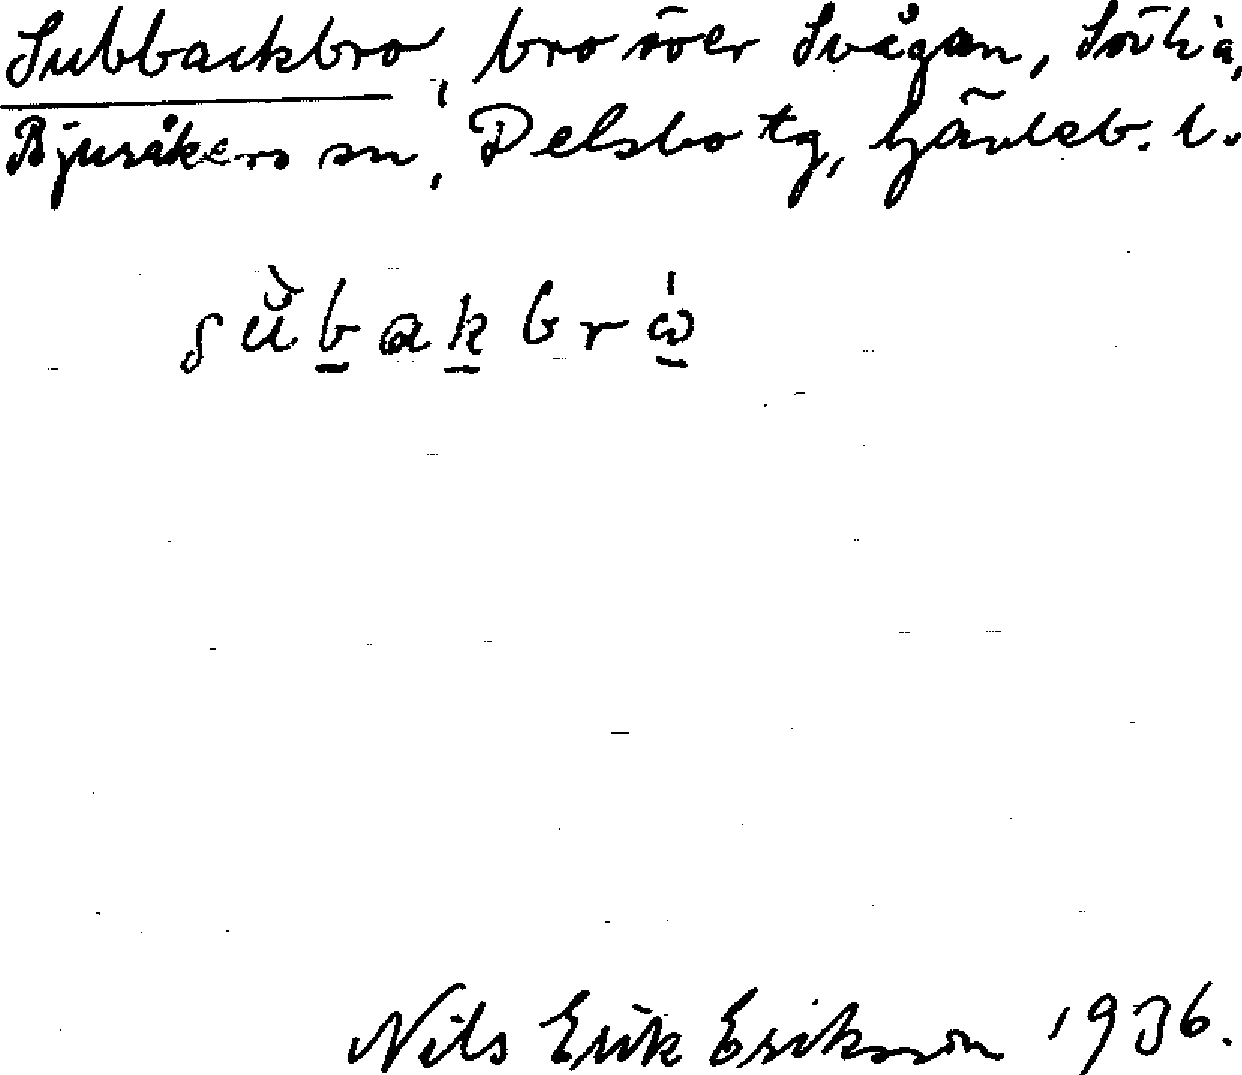 Subbackbro, bro över Svågan, Sörhå,
Bjuråkers sn, Delsbo tg, Gävleb. l.
su̇̀bakbrω̇
Nils Erik Eriksson 1936.